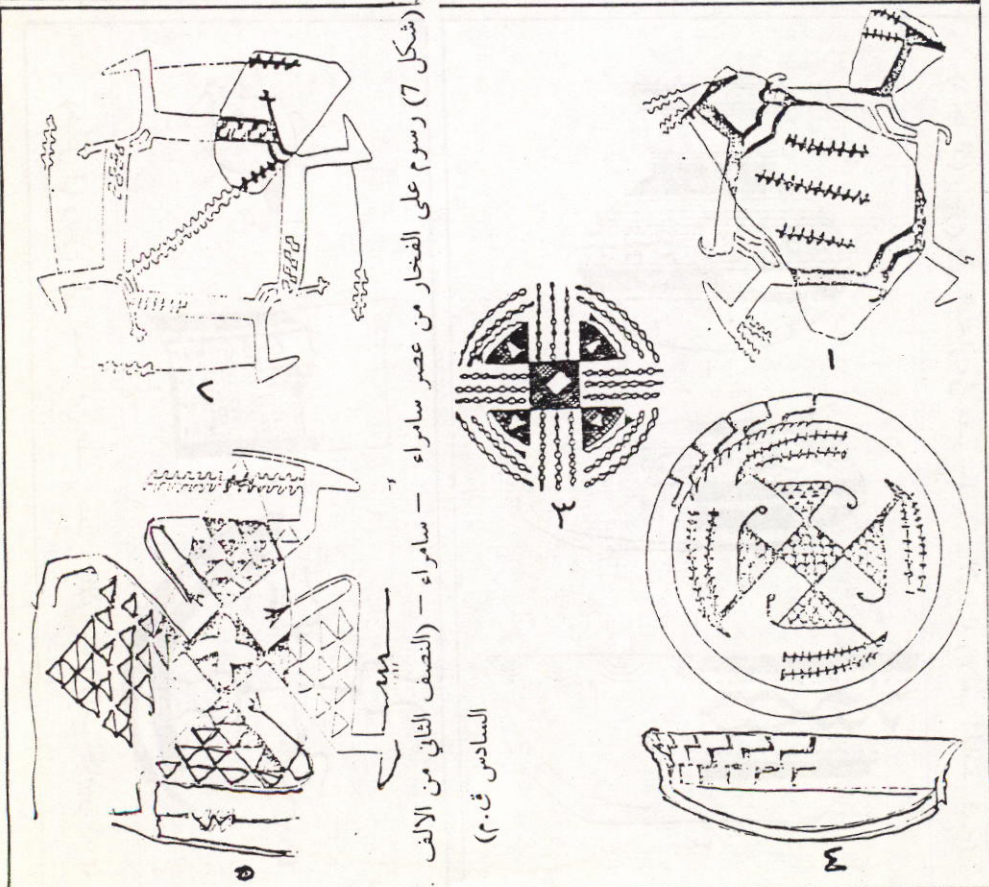 (شكل 7) رسوم على الفخار من عصر سامراء — سامراء — (النصف الثاني من الالف
السادس ق.م)
١
٢
٣
٤
٥